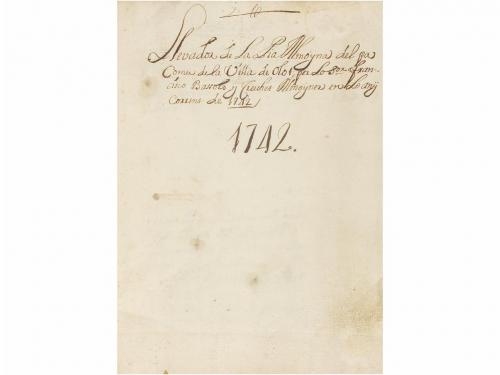 Llevador de La Pia Almoyna del pa
Comu de la Villa de Olot, per Lo Sor Fran-
cisco Bassols y Almoyner en Lo any
Corrent de 1742
1742.